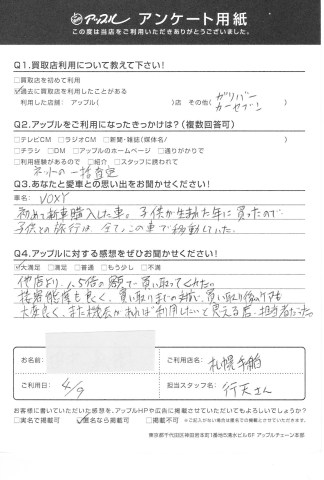 アップル アンケート用紙
この度は当店をご利用いただきありがとうございました。
Q1.買取店利用について教えて下さい!
□買取店を初めて利用
☑過去に買取店を利用したことがある
利用した店舗: アップル( )店 その他( ガリバー カーセブン )
Q2.アップルをご利用になったきっかけは?(複数回答可)
□テレビCM □ラジオCM □新聞・雑誌(媒体名/ )
□チラシ □DM □アップルのホームページ □通りがかりで
□利用経験があるので □紹介 □スタッフに誘われて
ネットの一括査定
Q3.あなたと愛車との思い出をお聞かせください!
車名: VOXY
初めて新車購入した車。子供が生まれた年に買ったので
子供との旅行は、全てこの車で移動していた。
Q4.アップルに対する感想をぜひお聞かせください!
☑大満足 □満足 □普通 □もう少し □不満
他店より、1.5倍の額で買い取ってくれた。
接客態度も良く、買い取りまでの対応、買い取り後のケアも
大変良く、また機会があれば利用したいと思える店、担当者だった。
お名前:
ご利用店名: 札幌手稲
ご利用日: 4/9
担当スタッフ名: 行天さん
お客様に書いていただいた感想を、アップルHPや広告に掲載させていただいてもよろしいでしょうか?
□実名で掲載可 ☑匿名なら掲載可 □掲載不可
東京都千代田区神田岩本町1番地5清水ビル6F アップルチェーン本部